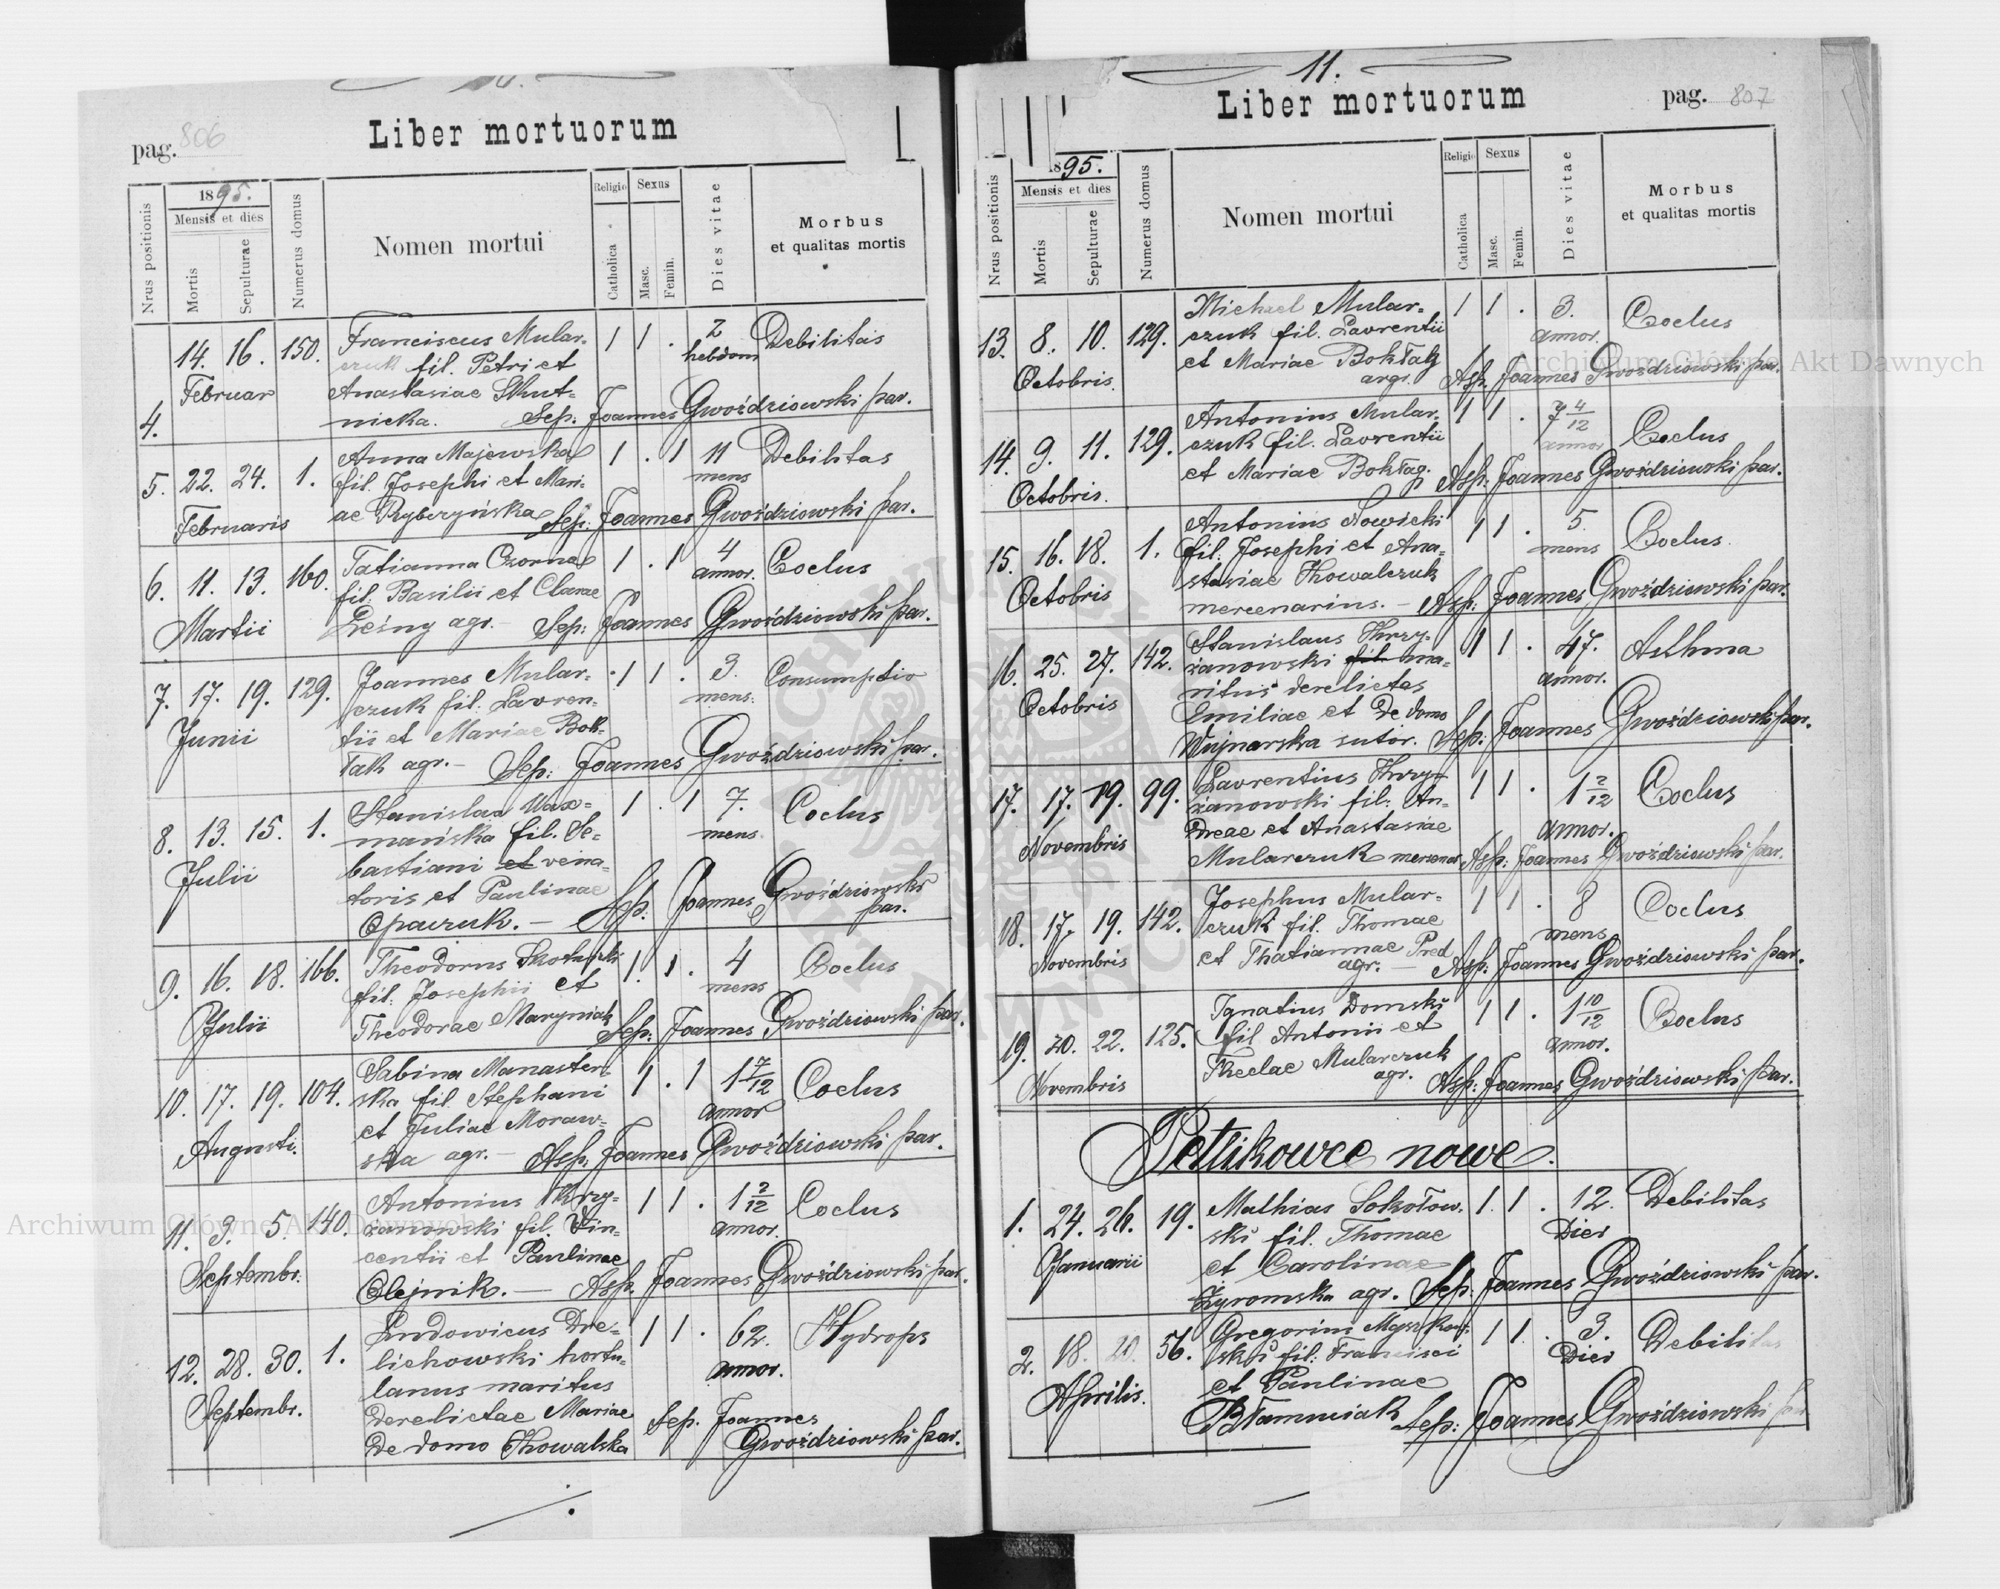 pag. 806
Liber mortuorum
Nrus positionis
1895.
Mensis et dies
Mortis
Sepulturae
Numerus domus
Nomen mortui
Religio
Catholica
Sexus
Masc.
Femin.
Dies vitae
Morbus
et qualitas mortis
4. 14. 16. 150. Franciscus Mular- 1 1 . 2 Debilitas
czuk fil. Petri et hebdom
Februar Anastasiae Skut-
nicka. Sep: Joannes Gwoździowski par.
5. 22. 24. 1. Anna Majewska 1 . 1 11 Debilitas
fil. Josephi et Mari- mens
Februaris ae Rybczyńska Sep: Joannes Gwoździowski par.
6. 11. 13. 160. Tatianna Czorna 1 . 1 4 Coclus
fil. Basilii et Clarae annor.
Martii Leśny agr. - Sep: Joannes Gwoździowski par.
7. 17. 19. 129. Joannes Mular- 1 1 . 3. Consumptio
czuk fil. Lavren- mens.
Junii tii et Mariae Bok-
łak agr. - Sep: Joannes Gwoździowski par.
8. 13. 15. 1. Stanislaa 1 . 1 7. Coclus
mańska fil. Se- mens.
Julii bastiani et vena-
toris et Paulinae
Opaczuk. - Sep. Joannes Gwoździowski
par.
9. 16. 18. 166. Theodorus 1. 1. 4 Coclus
fil. Josephii et mens
Julii Theodorae Maryniak Sep: Joannes Gwoździowski par.
10. 17. 19. 104. Sabina Manaster- 1 . 1 1 7/12 Coclus
ska fil Stephani annor
Augusti. et Juliae Moraw-
ska agr. - Asp: Joannes Gwoździowski par.
11. 3. 5. 140. Antonius Krzy- 1 1 . 1 2/12 Coclus
żanowski fil. Vin- annor.
Septembr. centii et Paulinae
Olejnik. - Asp. Joannes Gwoździowski par.
12. 28. 30. 1. Ludowicus Dre- 1 1 . 62. Hydrops
lichowski hortu- annor.
Septembr. lanus maritus
derelictae Mariae Sep. Joannes
de domo Kowalska Gwoździowski par.
11.
Liber mortuorum
pag. 807
Nrus positionis
1895.
Mensis et dies
Mortis
Sepulturae
Numerus domus
Nomen mortui
Religio
Catholica
Sexus
Masc.
Femin.
Dies vitae
Morbus
et qualitas mortis
13. 8. 10. 129. Michael Mular- 1 1 . 3. Coclus
czuk fil. Lavrentii annor.
Octobris. et Mariae Bokłag
argr. Asp. Joannes Gwoździowski par.
14. 9. 11. 129. Antonius Mular- 1 1 . 7 4/12 Coclus
czuk fil. Lavrentii annor
Octobris. et Mariae Bokłag. Asp: Joannes Gwoździowski par.
15. 16. 18. 1. Antonius Nowicki 1 1 . 5. Coclus.
fil. Josephi et Ana- mens
Octobris stasiae Kowalczuk
mercenarius. - Asp: Joannes Gwoździowski par.
16. 25. 27. 142. Stanislaus Krzy- 1 1 . 47. Asthma
żanowski fil. ma- annor.
Octobris ritus derelictas
Emiliae et de domo
Wujnarska sutor. Sep: Joannes Gwoździowski par.
17. 17. 19. 99. Lavrentius Krzy- 1 1 . 1 2/12 Coclus
żanowski fil. An- annor.
Novembris dreae et Anastasiae
Mularczuk mersenar Asp: Joannes Gwoździowski par.
18. 17. 19. 142. Josephus Mular- 1 1 . 8 Coclus
czuk fil. Thomae mens
Novembris et Thatiannae Pred
agr. - Asp: Joannes Gwoździowski par.
19. 20. 22. 125. Ignatius Domski 1 1 . 1 10/12 Coclus
fil Antonii et annor.
Novembris Theclae Mularczuk
agr. Asp: Joannes Gwoździowski par.
Petlikowce nowe.
1. 24. 26. 19. Mathias Sokołow- 1. 1 . 12. Debilitas
ski fil. Thomae Dier
Januarii et Carolinae
Żyromska agr. Sep: Joannes Gwoździowski par.
2. 18. 20. 56. Gregorius Myszkow- 1 1 . 3. Debilitas
ski fil: Francisci Dier
Aprilis. et Paulinae
Błamuciak Sep: Joannes Gwoździowski
Archiwum Główne Akt Dawnych
Archiwum Główne Akt Dawnych